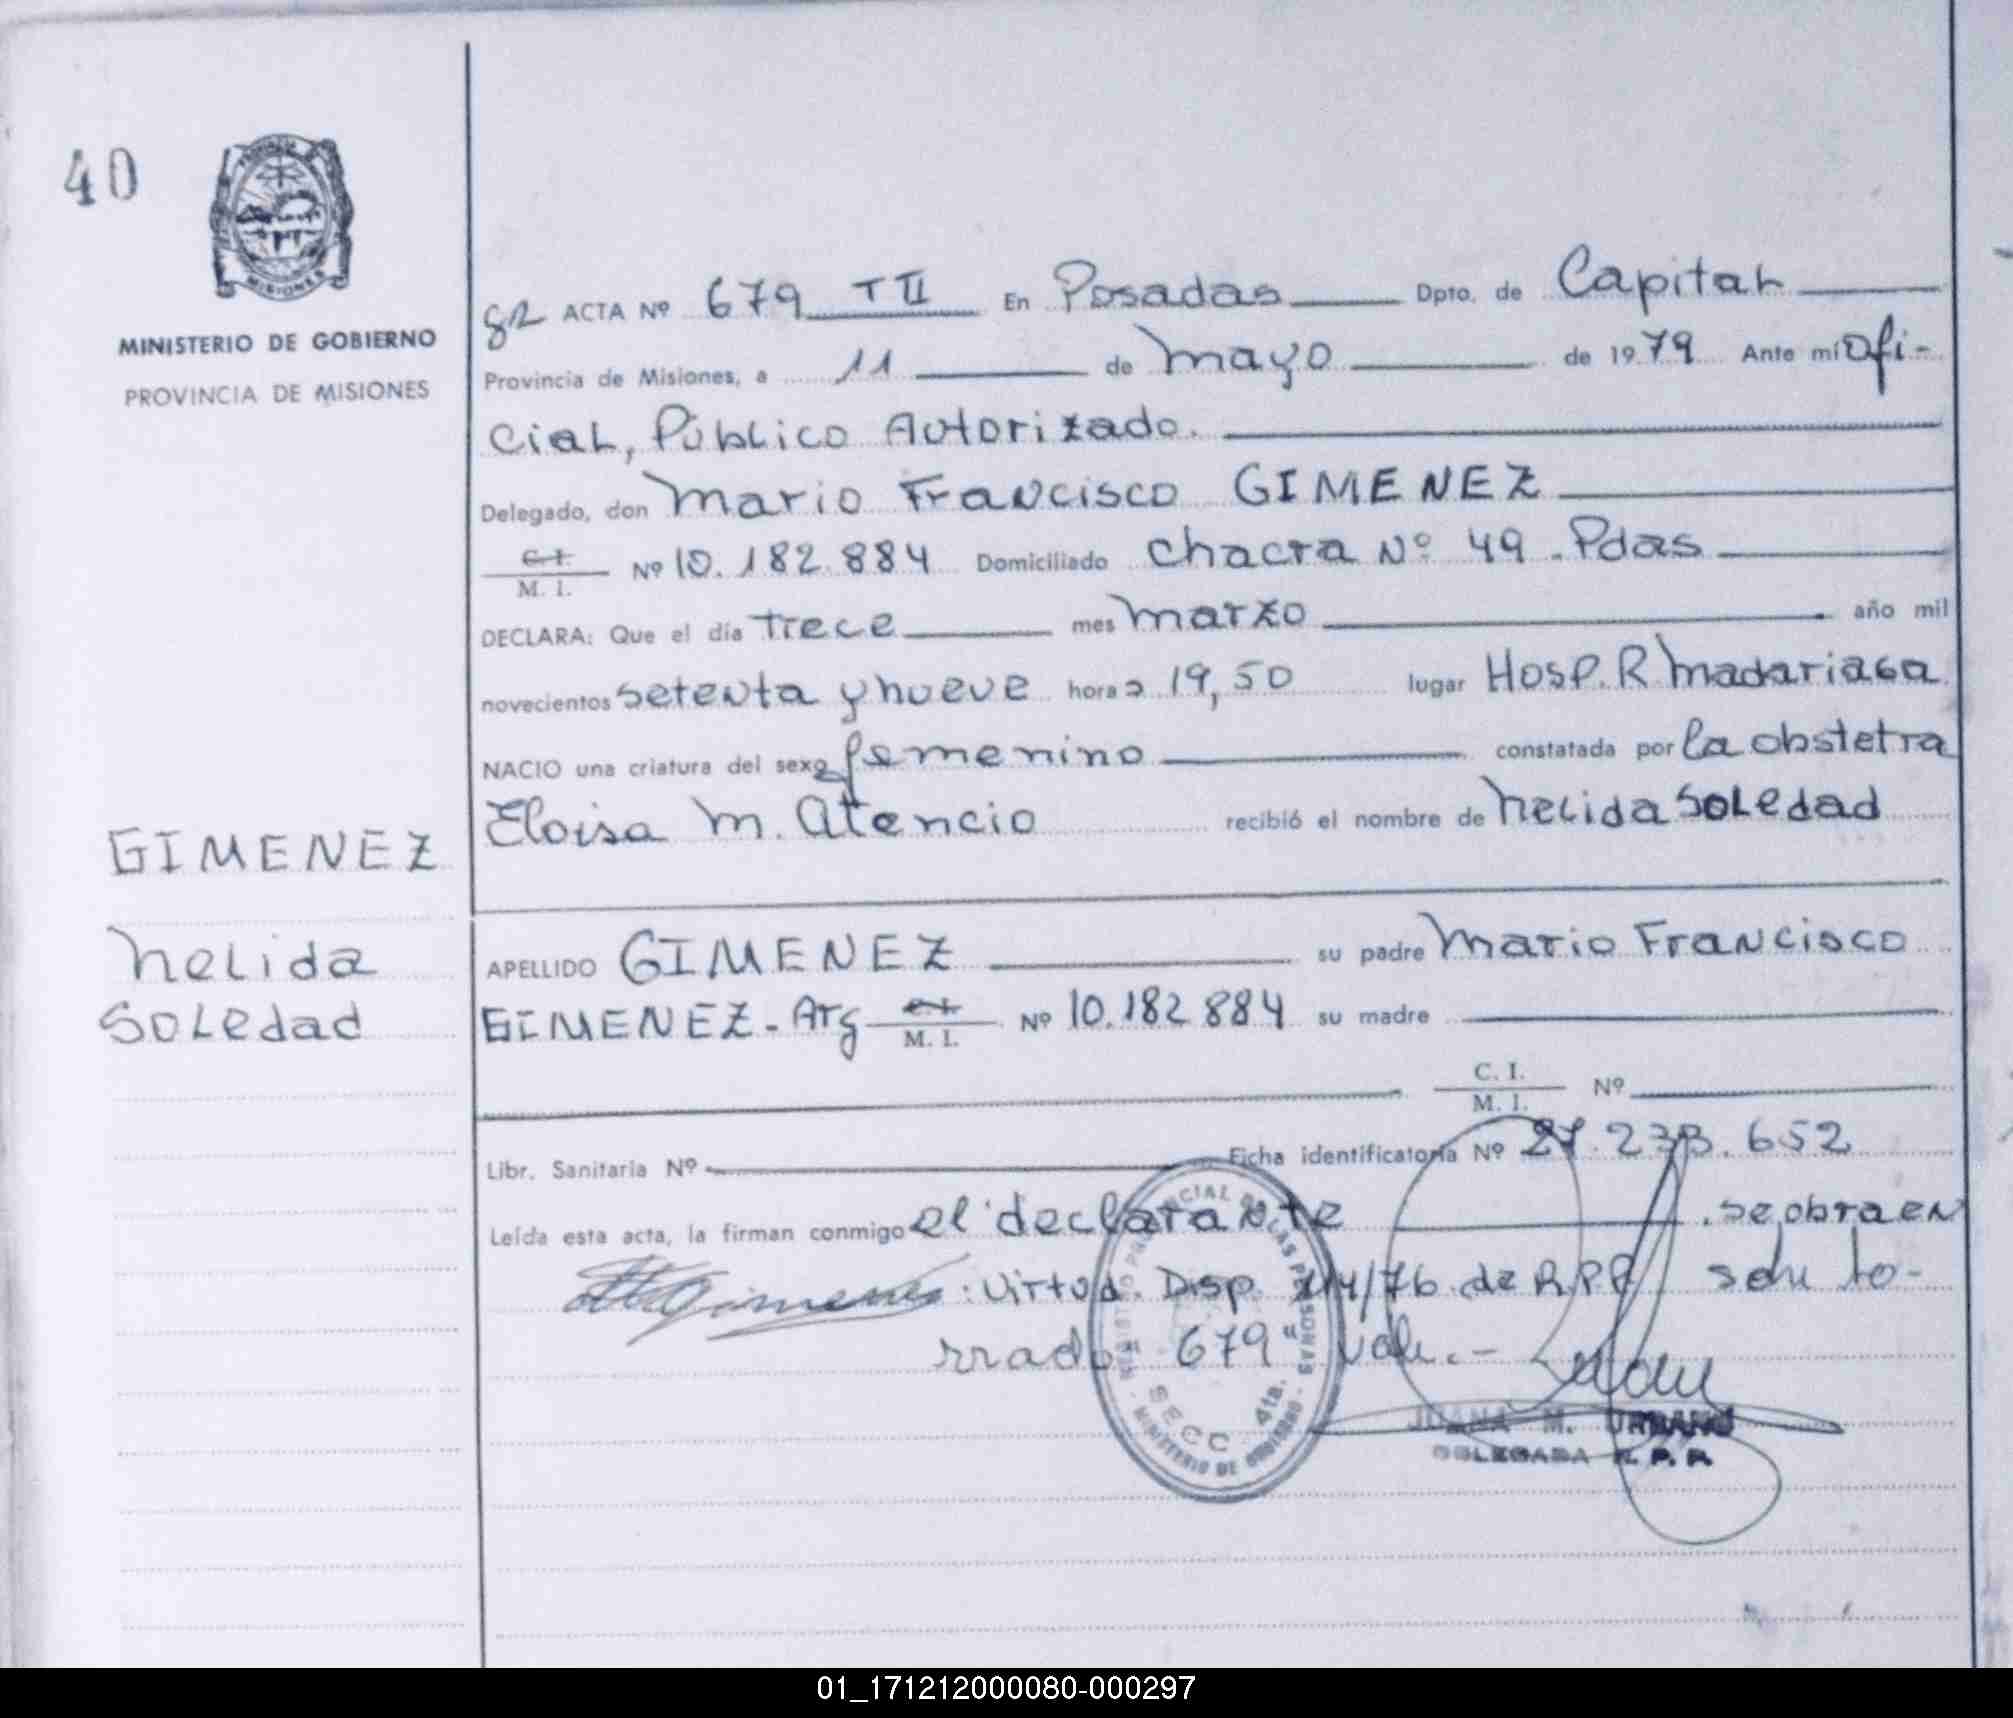 40
MINISTERIO DE GOBIERNO
PROVINCIA DE MISIONES
82 ACTA Nº 679 T II En Posadas Dpto. de Capital
Provincia de Misiones, a 11 de mayo de 1979 Ante mí Ofi-
cial, Público Autorizado.
Delegado, don Mario Francisco GIMENEZ
C.I. M. I. Nº 10.182.884 Domiciliado chacra Nº 49. Pdas
DECLARA: Que el día trece mes marzo año mil
novecientos setenta y nueve hora 19,50 lugar Hosp. R Madariaga
NACIO una criatura del sexo femenino constatada por la obstetra
Eloisa M. Atencio recibió el nombre de Nelida Soledad
GIMENEZ
Nelida
Soledad
APELLIDO GIMENEZ su padre Mario Francisco
GIMENEZ - Arg C.I. M. I. Nº 10.182.884 su madre
C. I. M. I. Nº
Libr. Sanitaria Nº Ficha identificatoria Nº 27.233.652
Leída esta acta, la firman conmigo el declarante . se obra en
Gimenez : virtud. Disp. /76 de R.P.P
rrado 679 vale.-
REGISTRO PROVINCIAL DE LAS PERSONAS
SECC 4ta.
MINISTERIO DE GOBIERNO
JUANA M. URBANO
DELEGADA R. P. P.
01_171212000080-000297